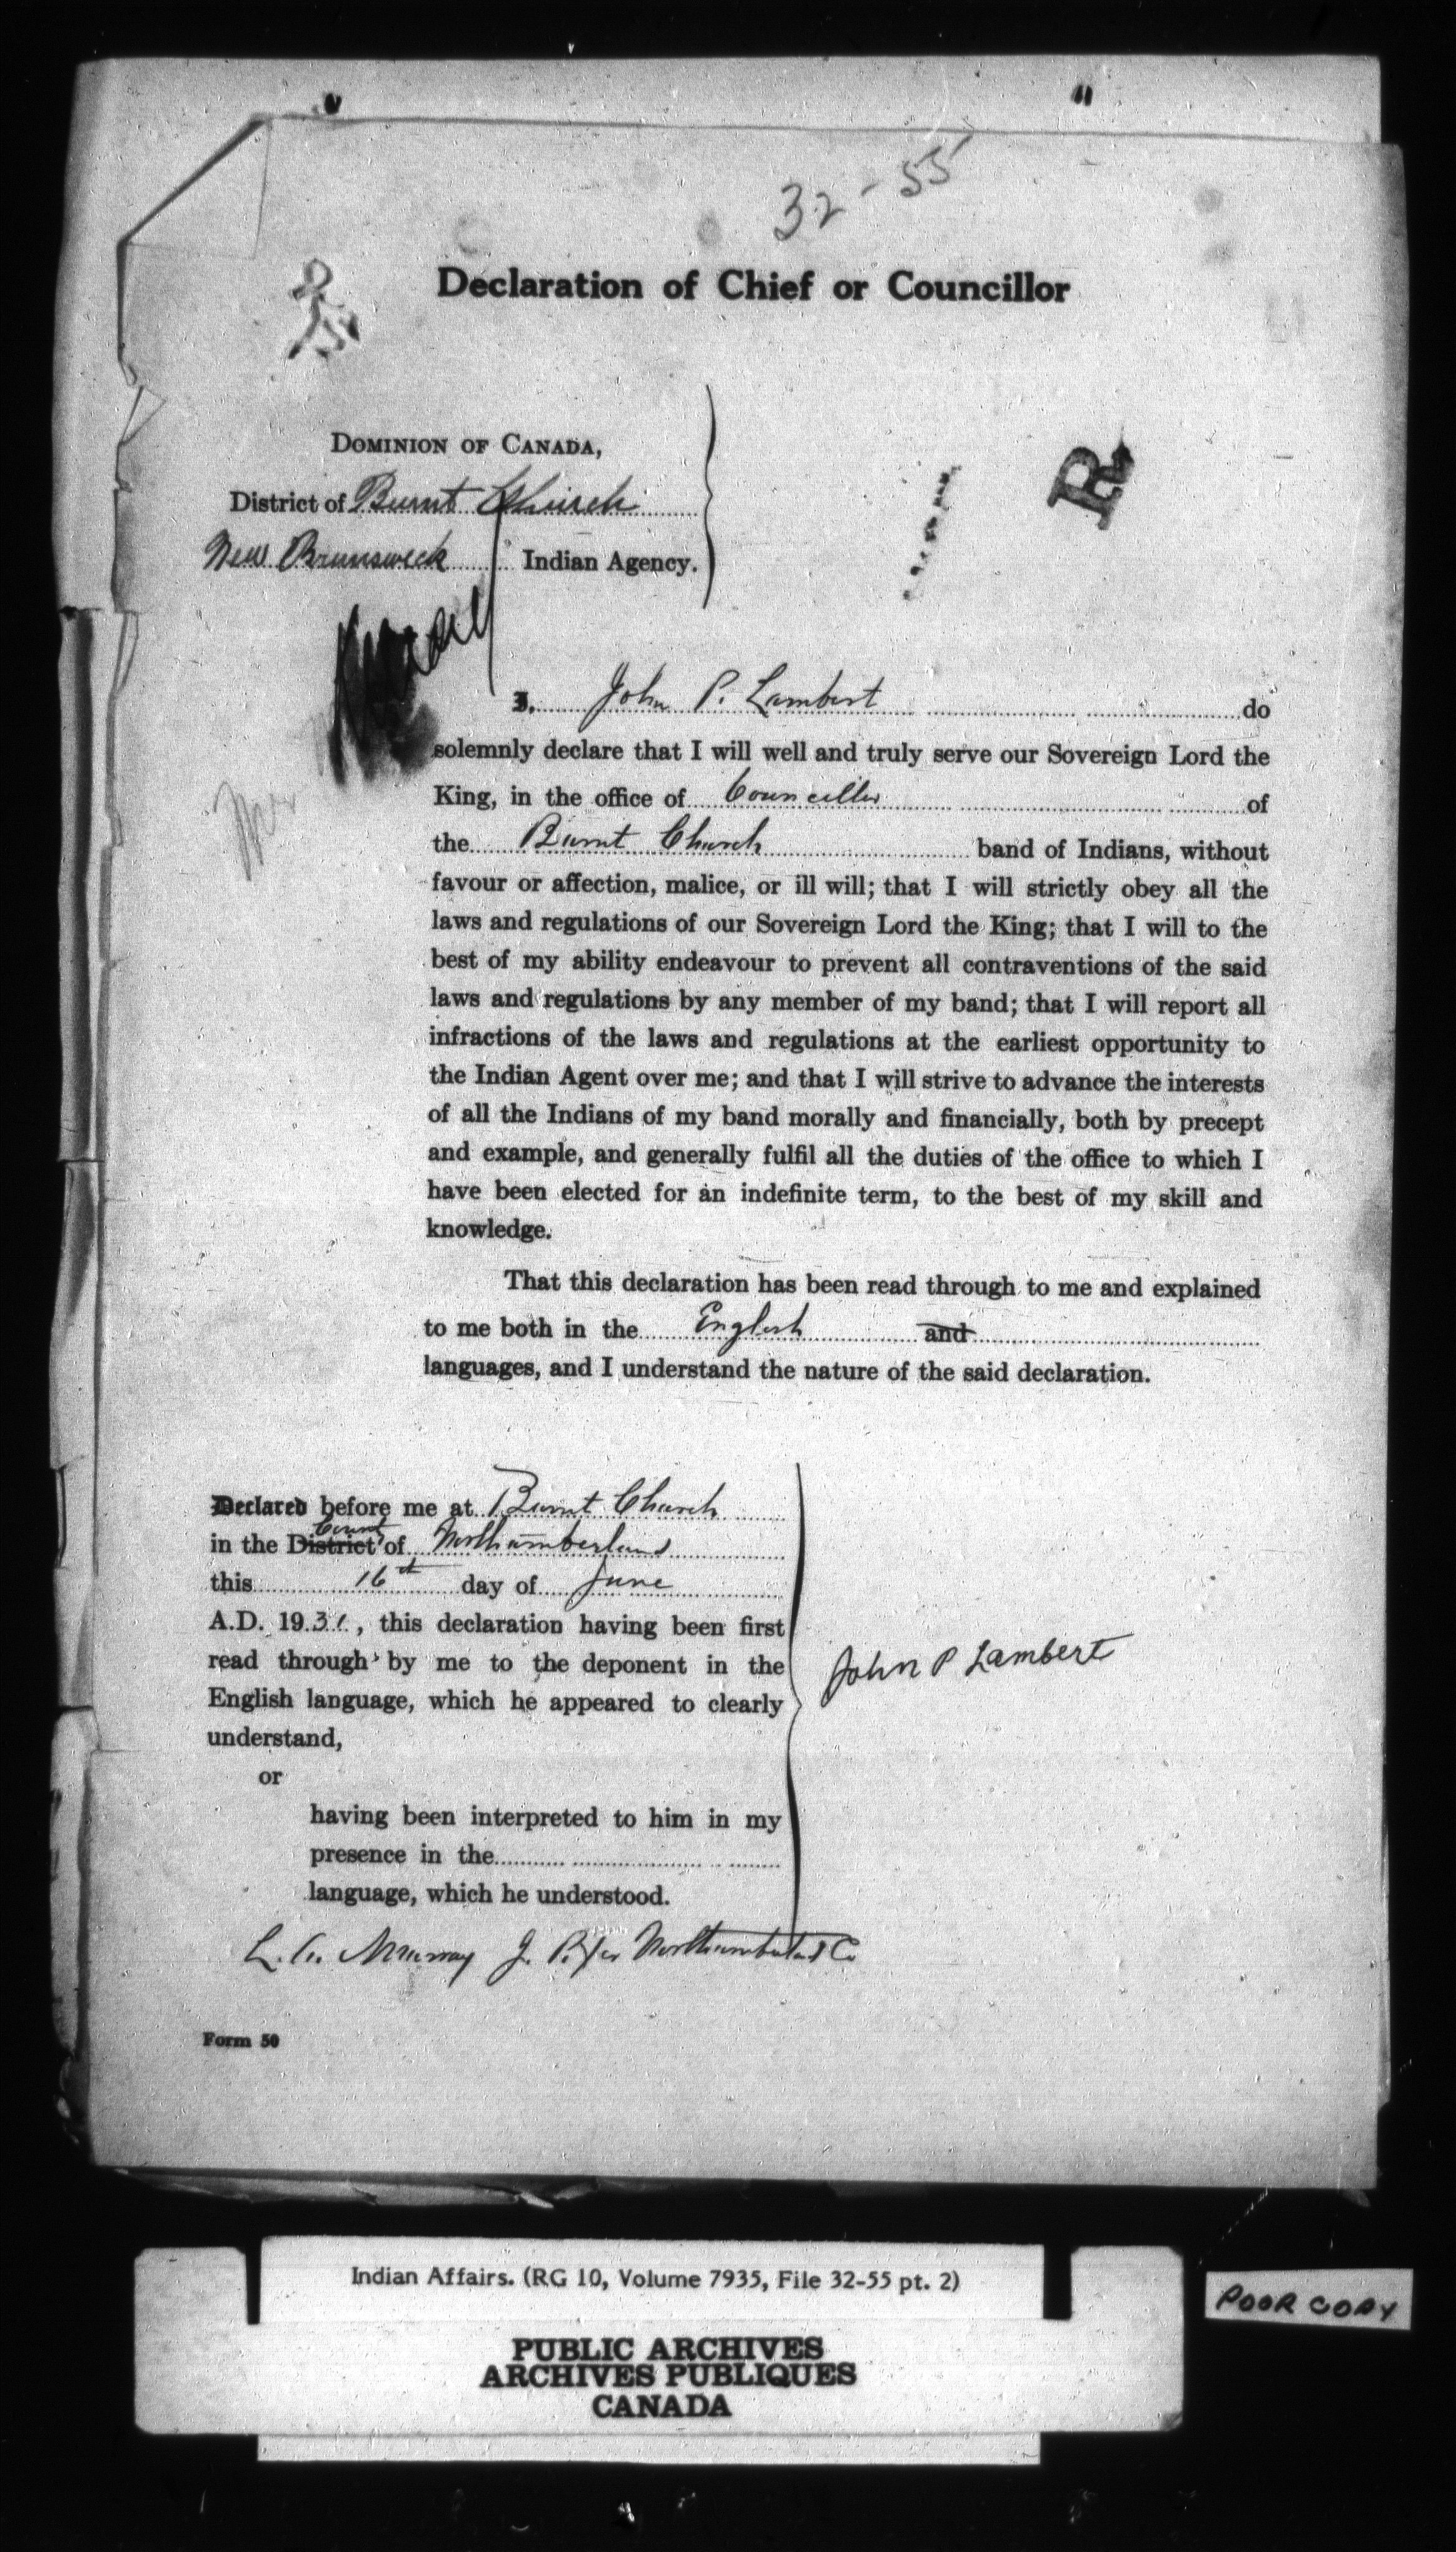 32-55
Declaration of Chief or Councillor
R
DOMINION OF CANADA,
District of Burnt Church
New Brunswick Indian Agency.
I, John P. Lambert do
solemnly declare that I will well and truly serve our Sovereign Lord the
King, in the office of Councillor of
the Burnt Church band of Indians, without
favour or affection, malice, or ill will; that I will strictly obey all the
laws and regulations of our Sovereign Lord the King; that I will to the
best of my ability endeavour to prevent all contraventions of the said
laws and regulations by any member of my band; that I will report all
infractions of the laws and regulations at the earliest opportunity to
the Indian Agent over me; and that I will strive to advance the interests
of all the Indians of my band morally and financially, both by precept
and example, and generally fulfil all the duties of the office to which I
have been elected for an indefinite term, to the best of my skill and
knowledge.
That this declaration has been read through to me and explained
to me both in the English and
languages, and I understand the nature of the said declaration.
Declared before me at Burnt Church
in the District County of Northumberland
this 16th day of June
A.D. 1931, this declaration having been first
read through by me to the deponent in the
English language, which he appeared to clearly
understand,
John P Lambert
or
having been interpreted to him in my
presence in the
language, which he understood.
Murray J. P. for Northumberland Co
Form 50
Indian Affairs. (RG 10, Volume 7935, File 32-55 pt. 2)
POOR COPY
PUBLIC ARCHIVES
ARCHIVES PUBLIQUES
CANADA